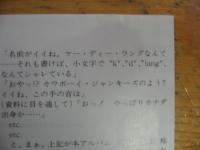 「名前がイイね。ケー・ディー・ラングなんて
──それも書けば、小文字で "k","d","lang",
なんてシャレている」
「おやっ!? カウボーイ・ジャンキーズのよう?
イイね、この手の音は」
(資料に目を通して)「おっ! やっぱりカナダ
出身か……」
etc.
etc.
と、まあ、上記が本アルバム